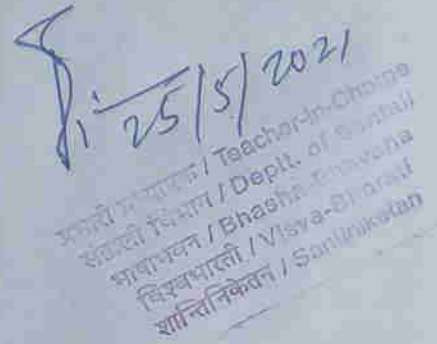 25/5/2021
प्रभारी अध्यापक / Teacher-in-Charge
संताली विभाग / Deptt. of Santali
भाषाभवन / Bhasha-Bhavana
विश्वभारती / Visva-Bharati
शान्तिनिकेतन / Santiniketan